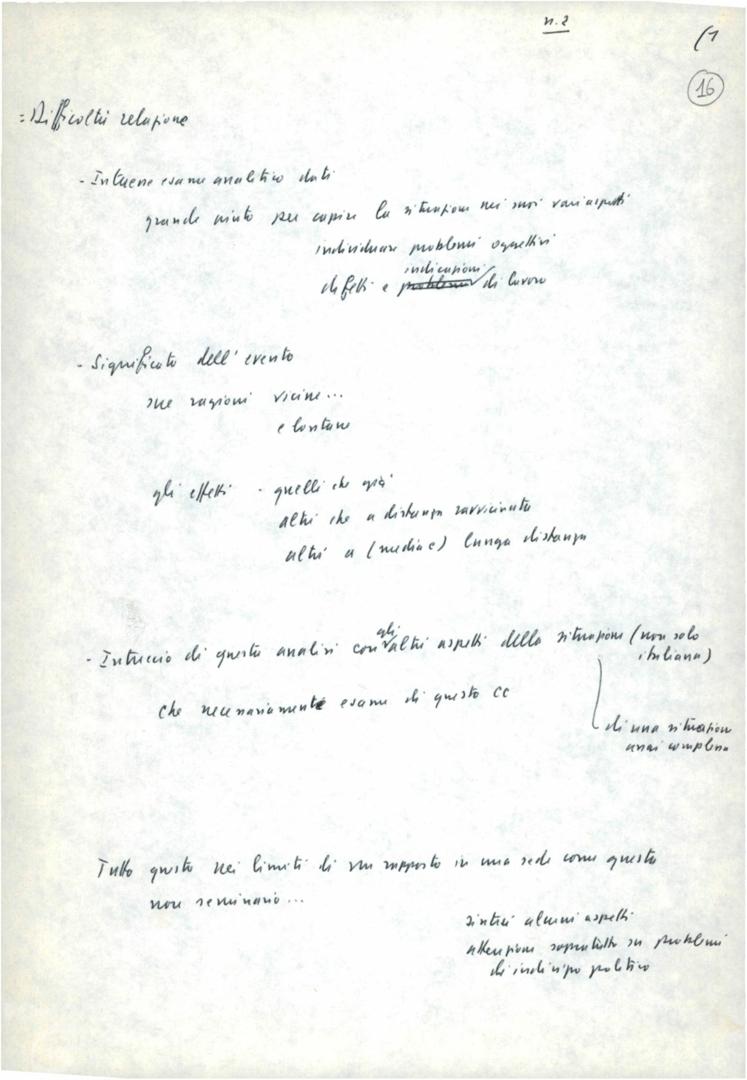 n. 2
(1
16
= Difficoltà relazione
- Intenene esame analitico dati
grande aiuto per capire la situazione nei suoi vari aspetti
individuare problemi oggettivi
indicazioni
difetti e problemi di lavoro
- Significato dell'evento
sue ragioni vicine...
e lontane
gli effetti - quelli che già
altri che a distanza ravvicinata
altri a (media e) lunga distanza
- Intreccio di questa analisi con gli altri aspetti della situazione (non solo
italiana)
che necessariamente esame di questo cc
di una situazione
assai complessa
Tutto questo nei limiti di un rapporto in una sede come questa
non seminario...
sintesi alcuni aspetti
attenzione soprattutto su problemi
di indirizzo politico